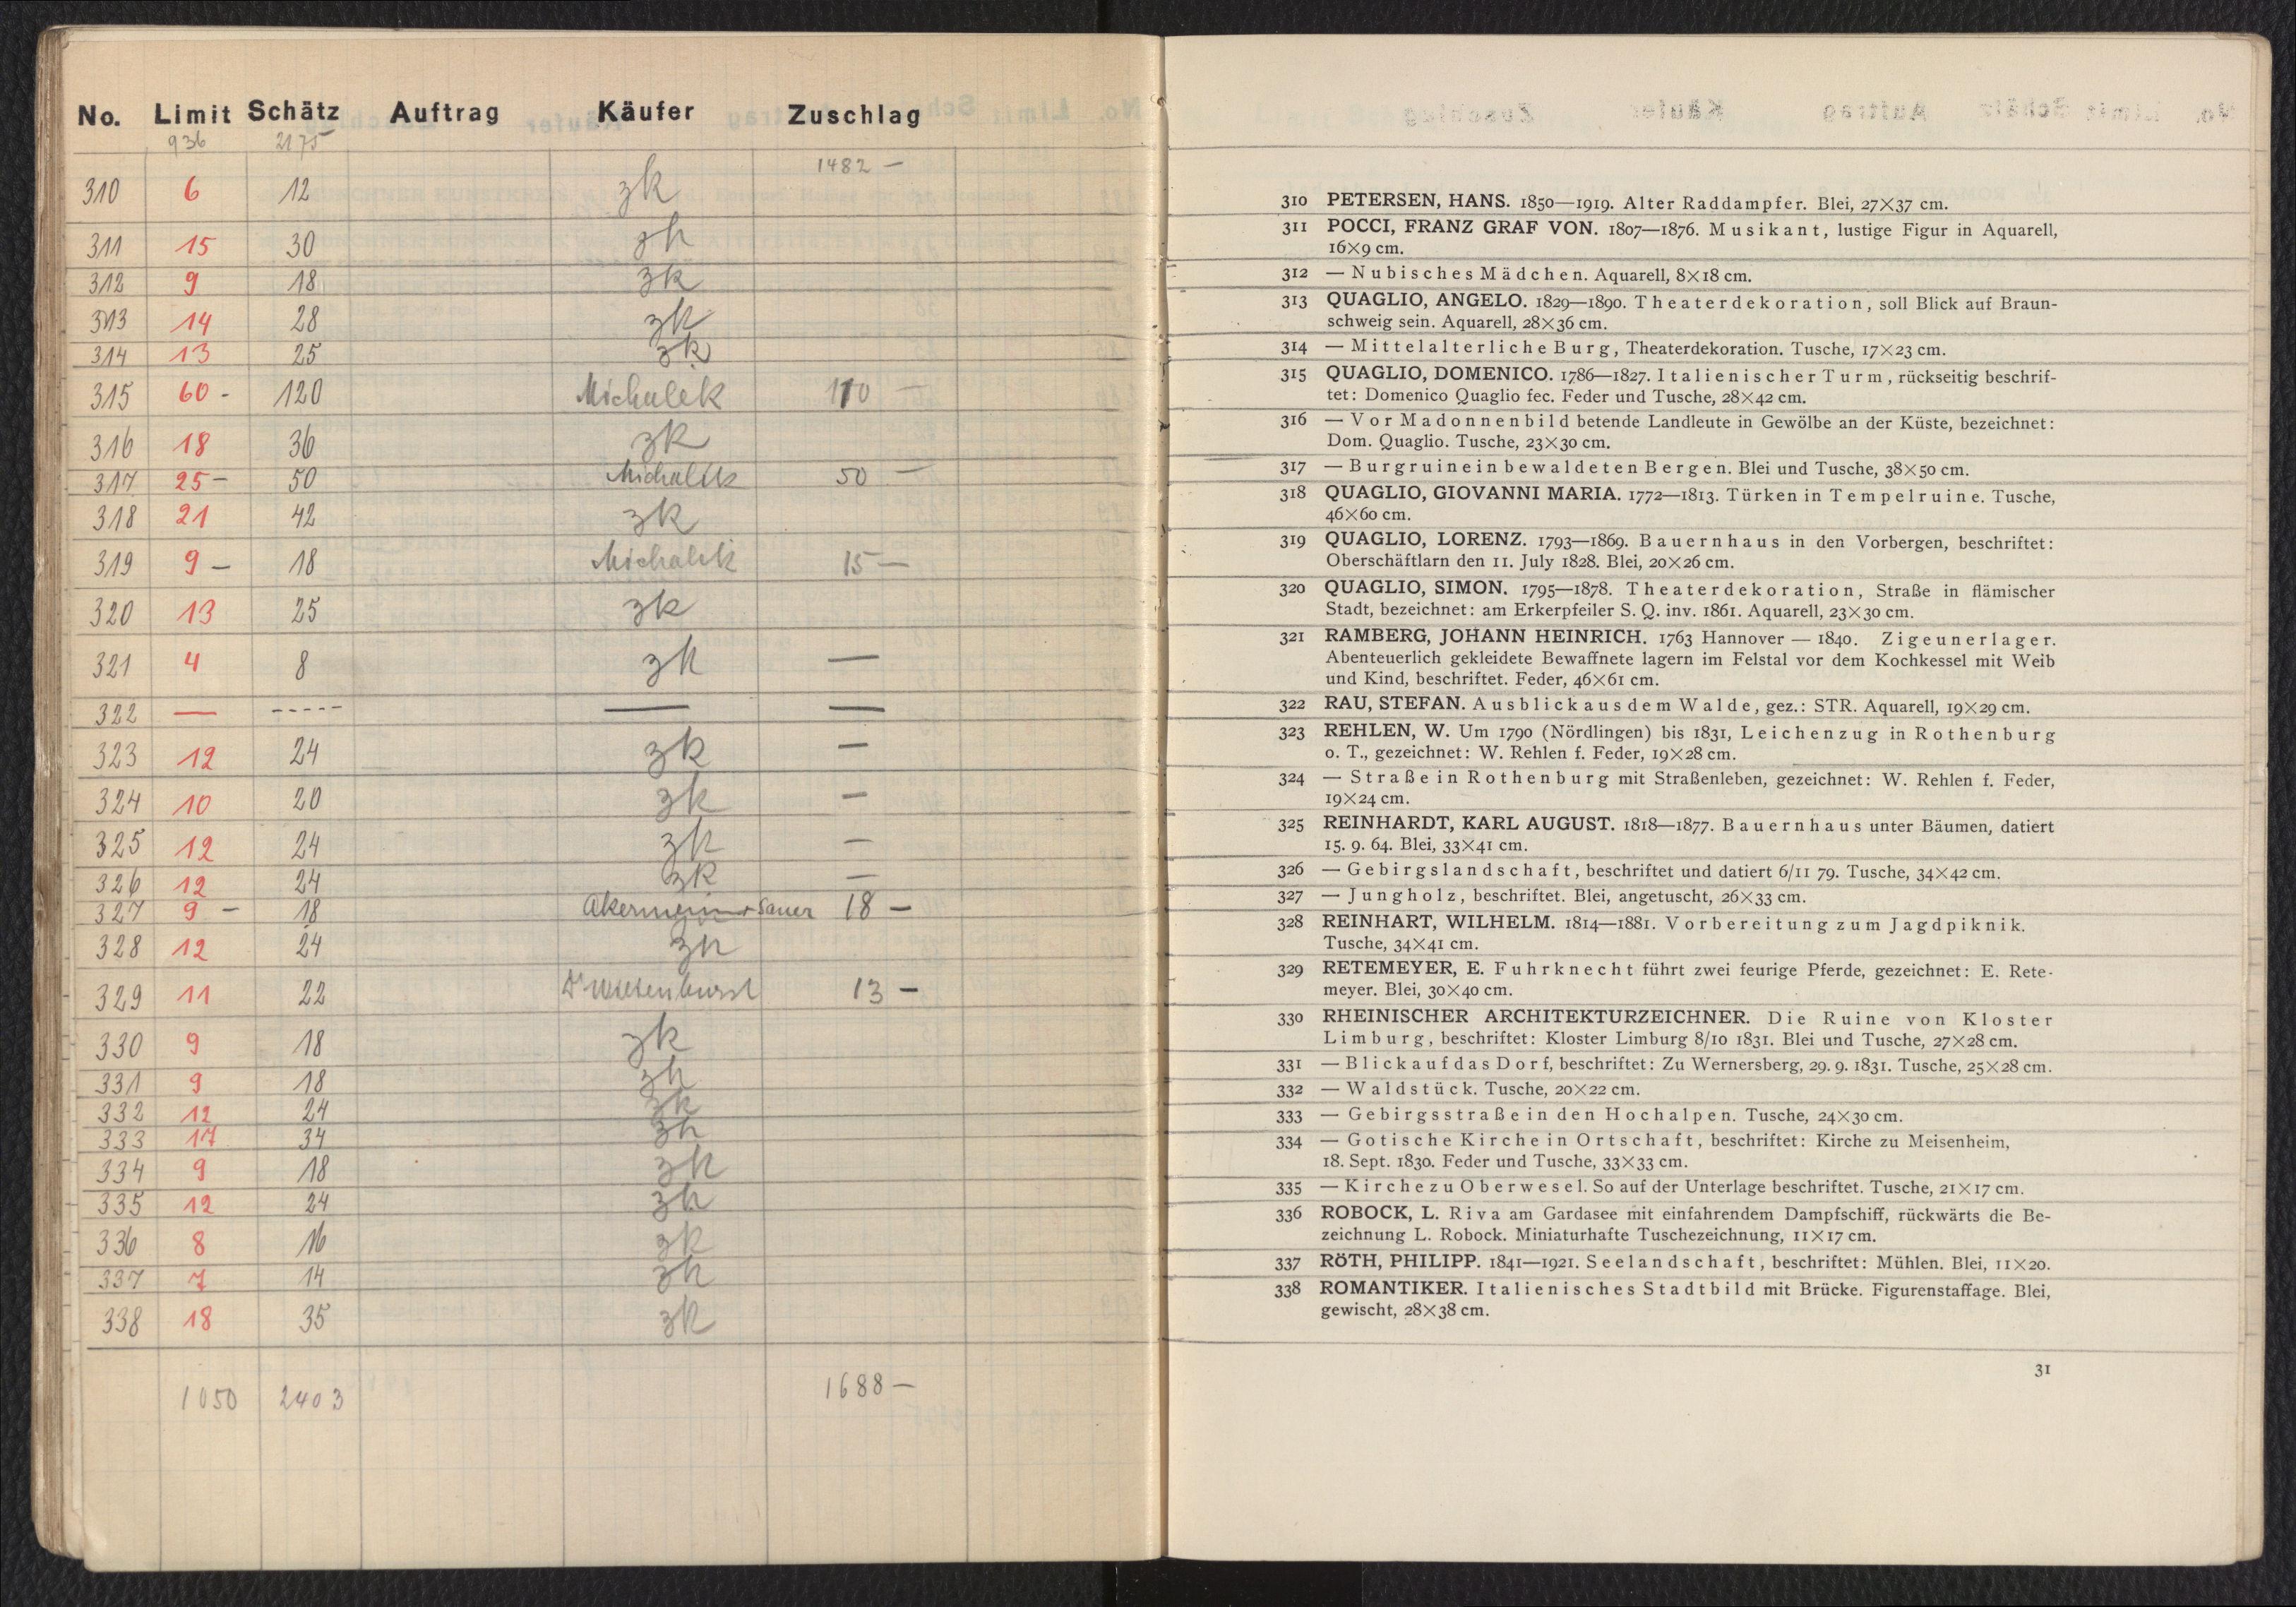 No. Limit Schätz Auftrag Käufer Zuschlag
936 2175
1482 —
310 6 12 zk
311 15 30 zk
312 9 18 zk
313 14 28 zk
314 13 25 zk
315 60 - 120 Michalek 110 —
316 18 36 zk
317 25 — 50 Michalek 50 —
318 21 42 zk
319 9 — 18 Michalek 15 —
320 13 25 zk
321 4 8 zk —
322 — ----- — —
323 12 24 zk —
324 10 20 zk —
325 12 24 zk —
326 12 24 zk —
327 9 — 18 Sauer 18 —
328 12 24 zk
329 11 22 Dr 13 —
330 9 18 zk
331 9 18 zk
332 12 24 zk
333 17 34 zk
334 9 18 zk
335 12 24 zk
336 8 16 zk
337 7 14 zk
338 18 35 zk
1050 2403 1688 —
310 PETERSEN, HANS. 1850—1919. Alter Raddampfer. Blei, 27×37 cm.
311 POCCI, FRANZ GRAF VON. 1807—1876. Musikant, lustige Figur in Aquarell,
16×9 cm.
312 — Nubisches Mädchen. Aquarell, 8×18 cm.
313 QUAGLIO, ANGELO. 1829—1890. Theaterdekoration, soll Blick auf Braun-
schweig sein. Aquarell, 28×36 cm.
314 — Mittelalterliche Burg, Theaterdekoration. Tusche, 17×23 cm.
315 QUAGLIO, DOMENICO. 1786—1827. Italienischer Turm, rückseitig beschrif-
tet: Domenico Quaglio fec. Feder und Tusche, 28×42 cm.
316 — Vor Madonnenbild betende Landleute in Gewölbe an der Küste, bezeichnet:
Dom. Quaglio. Tusche, 23×30 cm.
317 — Burgruine in bewaldeten Bergen. Blei und Tusche, 38×50 cm.
318 QUAGLIO, GIOVANNI MARIA. 1772—1813. Türken in Tempelruine. Tusche,
46×60 cm.
319 QUAGLIO, LORENZ. 1793—1869. Bauernhaus in den Vorbergen, beschriftet:
Oberschäftlarn den 11. July 1828. Blei, 20×26 cm.
320 QUAGLIO, SIMON. 1795—1878. Theaterdekoration, Straße in flämischer
Stadt, bezeichnet: am Erkerpfeiler S. Q. inv. 1861. Aquarell, 23×30 cm.
321 RAMBERG, JOHANN HEINRICH. 1763 Hannover — 1840. Zigeunerlager.
Abenteuerlich gekleidete Bewaffnete lagern im Felstal vor dem Kochkessel mit Weib
und Kind, beschriftet. Feder, 46×61 cm.
322 RAU, STEFAN. Ausblick aus dem Walde, gez.: STR. Aquarell, 19×29 cm.
323 REHLEN, W. Um 1790 (Nördlingen) bis 1831, Leichenzug in Rothenburg
o. T., gezeichnet: W. Rehlen f. Feder, 19×28 cm.
324 — Straße in Rothenburg mit Straßenleben, gezeichnet: W. Rehlen f. Feder,
19×24 cm.
325 REINHARDT, KARL AUGUST. 1818—1877. Bauernhaus unter Bäumen, datiert
15. 9. 64. Blei, 33×41 cm.
326 — Gebirgslandschaft, beschriftet und datiert 6/11 79. Tusche, 34×42 cm.
327 — Jungholz, beschriftet. Blei, angetuscht, 26×33 cm.
328 REINHART, WILHELM. 1814—1881. Vorbereitung zum Jagdpiknik.
Tusche, 34×41 cm.
329 RETEMEYER, E. Fuhrknecht führt zwei feurige Pferde, gezeichnet: E. Rete-
meyer. Blei, 30×40 cm.
330 RHEINISCHER ARCHITEKTURZEICHNER. Die Ruine von Kloster
Limburg, beschriftet: Kloster Limburg 8/10 1831. Blei und Tusche, 27×28 cm.
331 — Blick auf das Dorf, beschriftet: Zu Wernersberg, 29. 9. 1831. Tusche, 25×28 cm.
332 — Waldstück. Tusche, 20×22 cm.
333 — Gebirgsstraße in den Hochalpen. Tusche, 24×30 cm.
334 — Gotische Kirche in Ortschaft, beschriftet: Kirche zu Meisenheim,
18. Sept. 1830. Feder und Tusche, 33×33 cm.
335 — Kirche zu Oberwesel. So auf der Unterlage beschriftet. Tusche, 21×17 cm.
336 ROBOCK, L. Riva am Gardasee mit einfahrendem Dampfschiff, rückwärts die Be-
zeichnung L. Robock. Miniaturhafte Tuschezeichnung, 11×17 cm.
337 RÖTH, PHILIPP. 1841—1921. Seelandschaft, beschriftet: Mühlen. Blei, 11×20.
338 ROMANTIKER. Italienisches Stadtbild mit Brücke. Figurenstaffage. Blei,
gewischt, 28×38 cm.
31